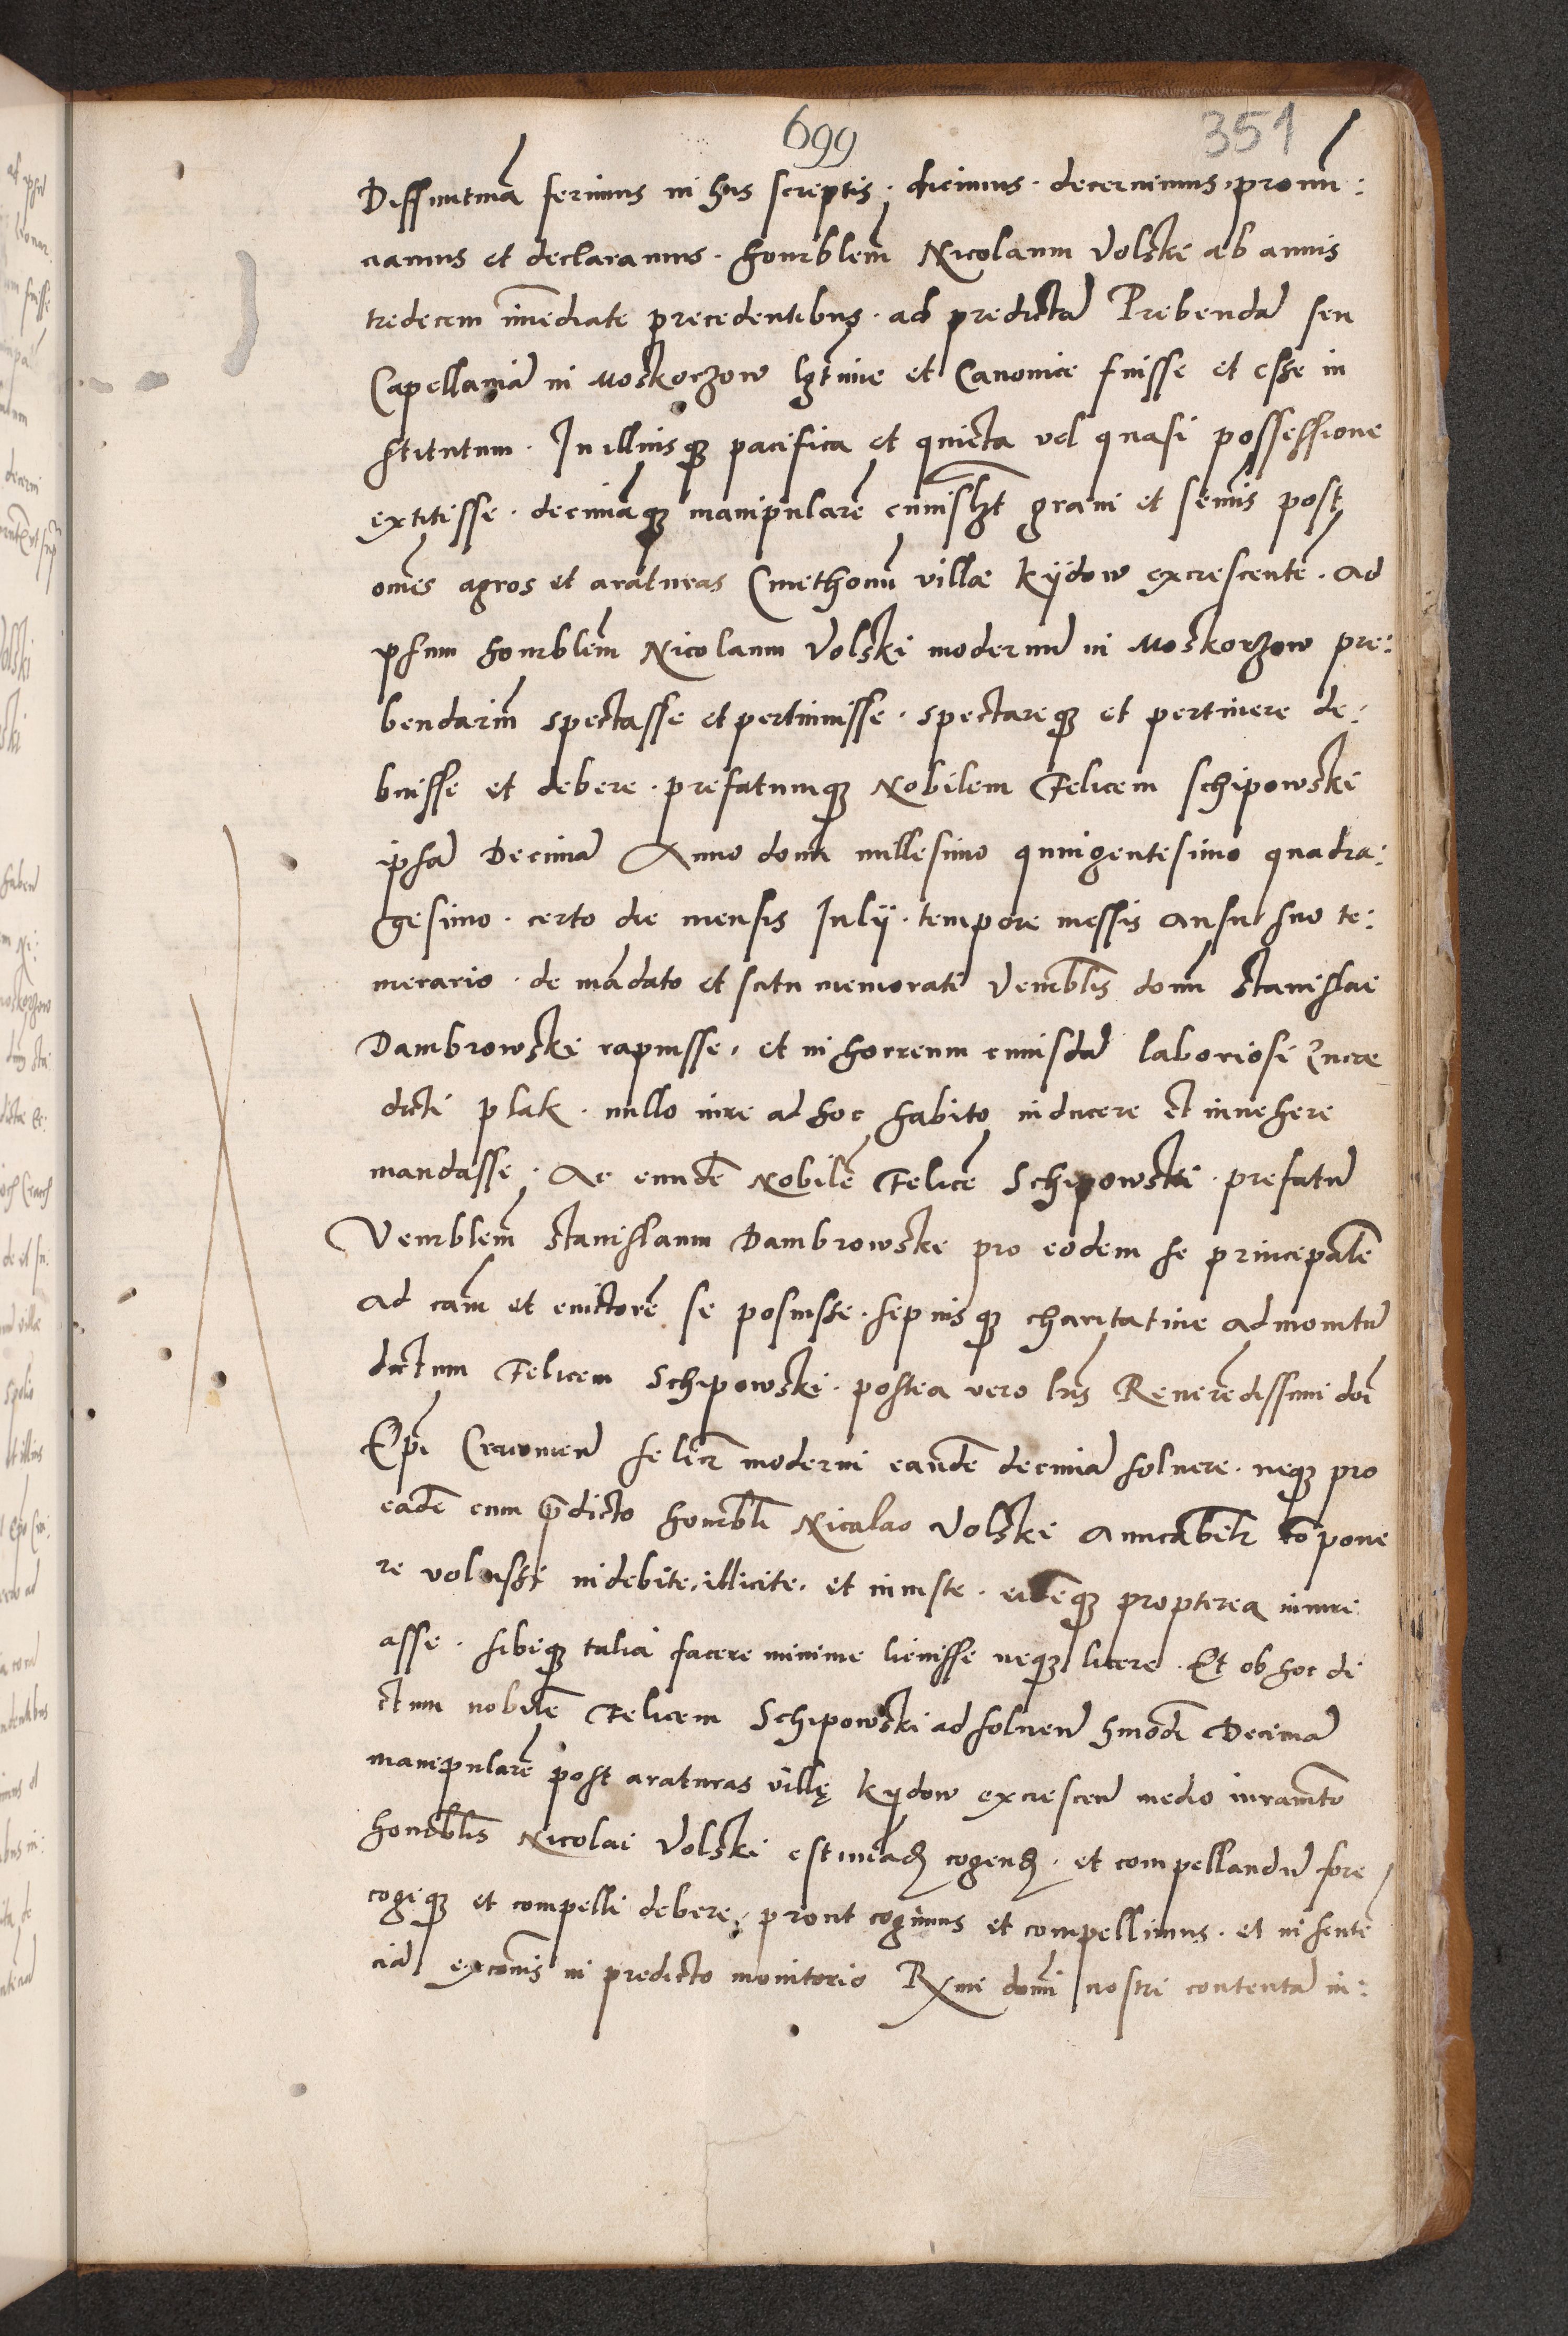 699
351
Diffinitivã ferimus in his scriptis, dicimus. decernimus, pronun:
ciamus et declaramus. honorablem̃ Nicolaum Volski ab annis
tredecem im̃ediate precedentibus. ad predictã Prebendã seu
Capellaniã in Moskorzow lgtime et Canonice fuisse et esse in
stitutum. In illiusq; pacifica et quieta vel quasi possessione
extitisse. decimãq; manipularẽ cuiuslzt grani et seminis post
om̃es agros et araturas Cmethonũ villae kijdow excrescentẽ. ad
ipsum honorablem̃ Nicolaum Volski modernũ in Moskorzow pre:
bendariũ spectasse et pertinuisse. spectareq; et pertinere de:
buisse et debere. prefatumq; Nobilem Felicem schipowski
ipsã Decimã Anno domi millesimo quingentesimo quadra:
gesimo. certo die mensis Julij. tempore messis ausu suo te:
merario. de mãdato et scitu memorati Venerablis domi Stanislai
Dambrowski rapuisse, et in horreum cuiusdã laboriosi Zurae
dicti plak. nullo iure ad hoc habito inducere et invehere
mandasse. Ac eundẽ Nobilẽ Felicẽ Schipowski. prefatũ
Venerablem̃ Stanislaum Dambrowski pro eodem se principalẽ
ad cam̃ et evictorẽ se posuisse. sepiusq; charitative admonitũ
dictum Felicem Schipowski. postea vero lr̃as Reverẽdissimi doi
Epĩ Cracovieñ felicr moderni eandẽ decimã solvere. neq; pro
eadẽ cum p̃dicto honorabli Nicolao Volski amicabilr cõpone
re voluisse indebite, illicite, et iniuste. eidẽq; propterea iniuri:
asse. sibiq; talia facere minime licuisse neq; licere. Et ob hoc di
ctum nobilẽ Felicem Schipowski ad solveñ hmodi Decimã
manipularẽ post araturas villę kijdow excresceñ medio iuramẽto
honorablis Nicolai Volski estimad cogend. et compellandũ fore
cogiq; et compelli debere, prout cogimus et compellimus. et in senten
ciã excõis in predicto monitorio Rxmi domi nostri contentã in: